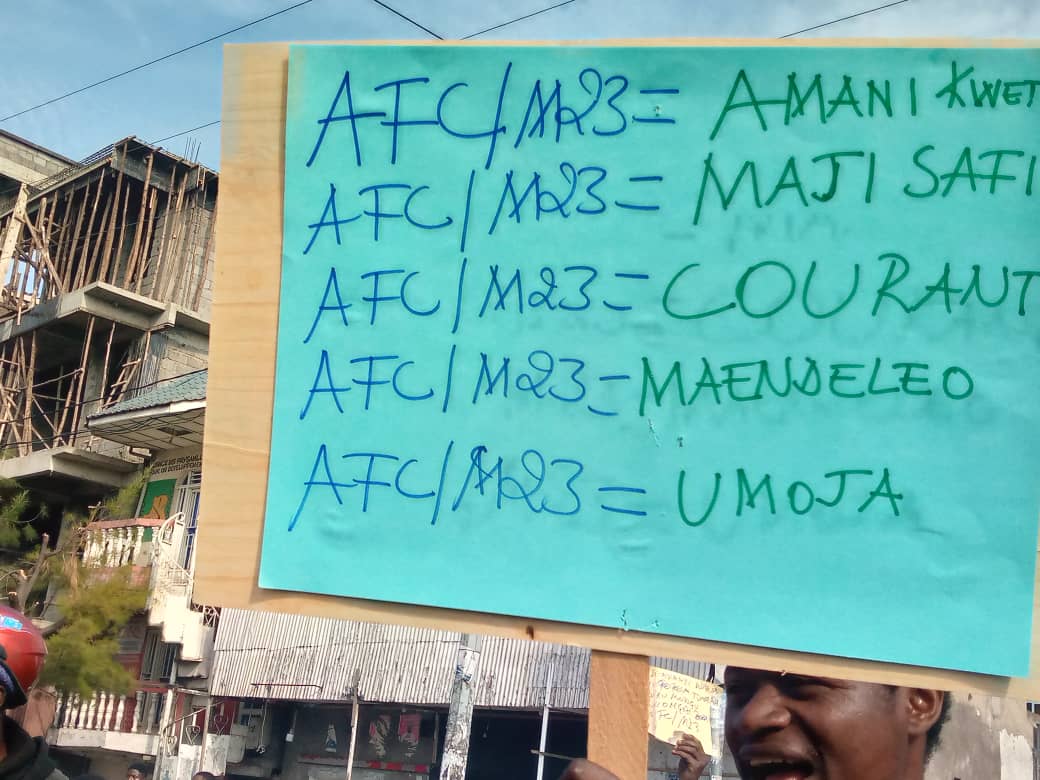 AFC/M23= AMANI KWET
AFC/M23= MAJI SAFI
AFC/M23=COURANT
AFC/M23=MAENDELEO
AFC/M23= UMOJA